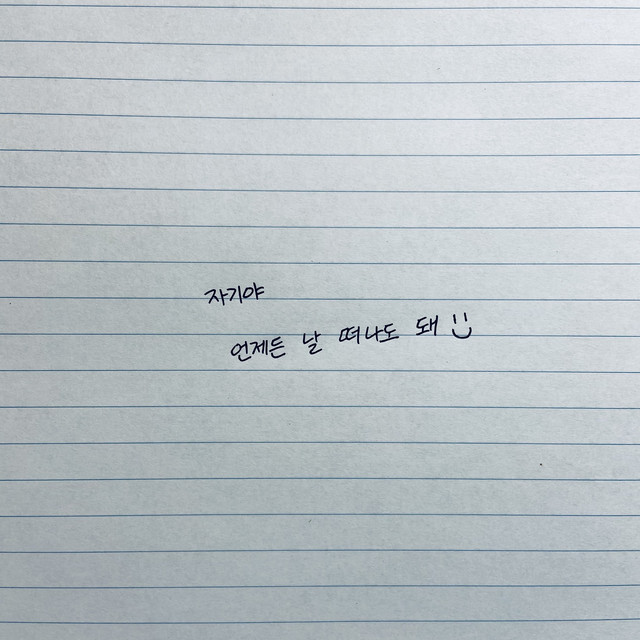 자기야
언제든 날 떠나도 돼 :)